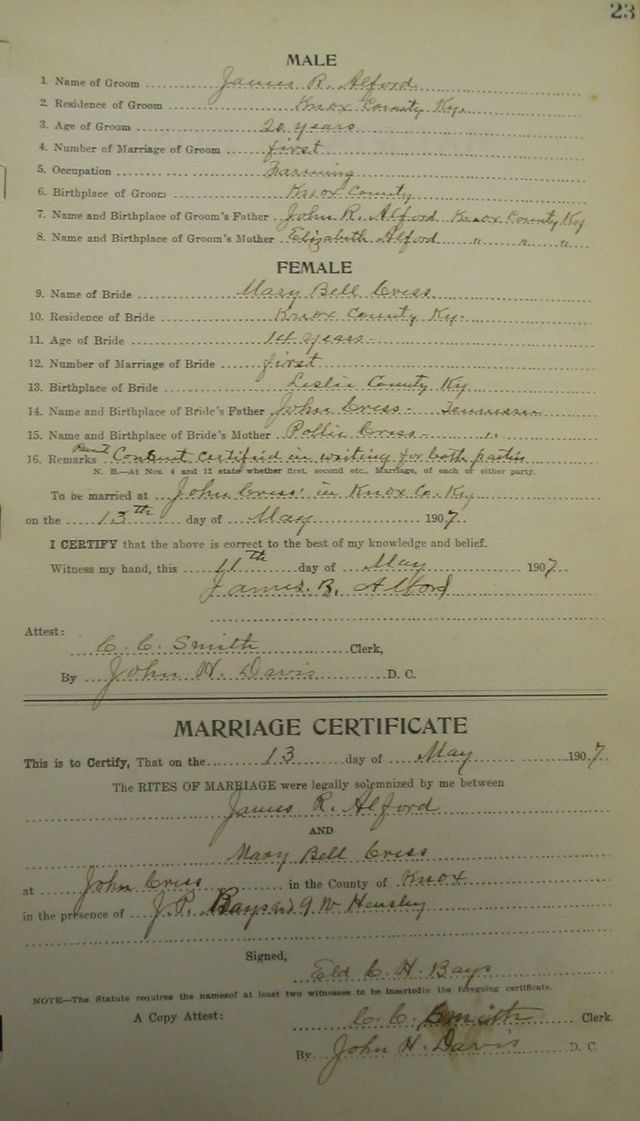 23
MALE
1. Name of Groom James R. Alford
2. Residence of Groom Knox County Ky.
3. Age of Groom 20 years
4. Number of Marriage of Groom first
5. Occupation Farming
6. Birthplace of Groom Knox County
7. Name and Birthplace of Groom's Father John R. Alford Knox County Ky
8. Name and Birthplace of Groom's Mother Elizabeth Alford " " "
FEMALE
9. Name of Bride Mary Bell Criss
10. Residence of Bride Knox County Ky.
11. Age of Bride 14 years
12. Number of Marriage of Bride first
13. Birthplace of Bride Leslie County Ky
14. Name and Birthplace of Bride's Father John Criss - Tennessee
15. Name and Birthplace of Bride's Mother Pollie Criss - "
16. Remarks Consent certified in writing for both parties
N. B.—At Nos. 4 and 12 state whether first, second etc., Marriage, of each or either party.
To be married at John Criss' in Knox Co. Ky
on the 13th day of May 1907
I CERTIFY that the above is correct to the best of my knowledge and belief.
Witness my hand, this 11th day of May 1907
James. R. Alford
Attest:
C. C. Smith Clerk,
By John H. Davis D. C.
MARRIAGE CERTIFICATE
This is to Certify, That on the 13 day of May 1907
The RITES OF MARRIAGE were legally solemnized by me between
James R. Alford
AND
Mary Bell Criss
at John Criss in the County of Knox
in the presence of J. P. Bays and G W Hensley
Signed,
Eld C. H. Bays
NOTE—The Statute requires the names of at least two witnesses to be inserted in the foregoing certificate.
A Copy Attest: C. C. Smith Clerk.
By John H. Davis D. C.